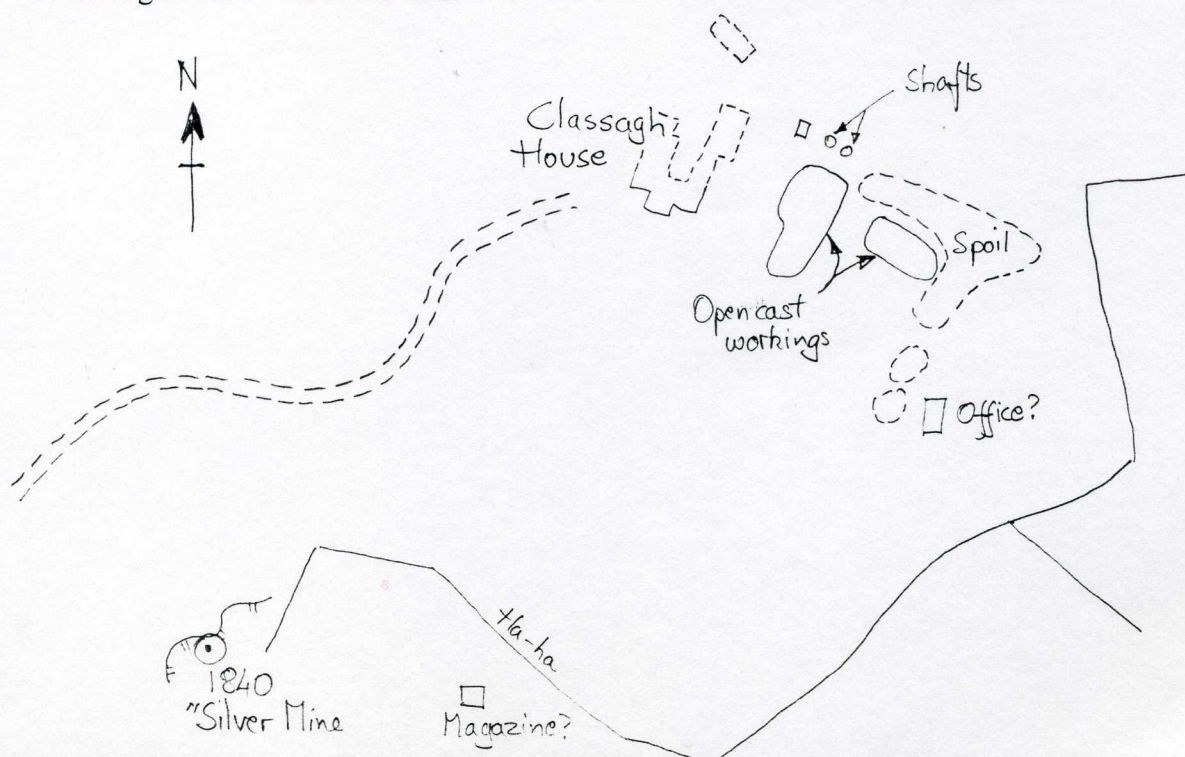 N
Shafts
Classagh
House
Spoil
Opencast
workings
Office?
Ha-ha
1840
"Silver Mine
Magazine?